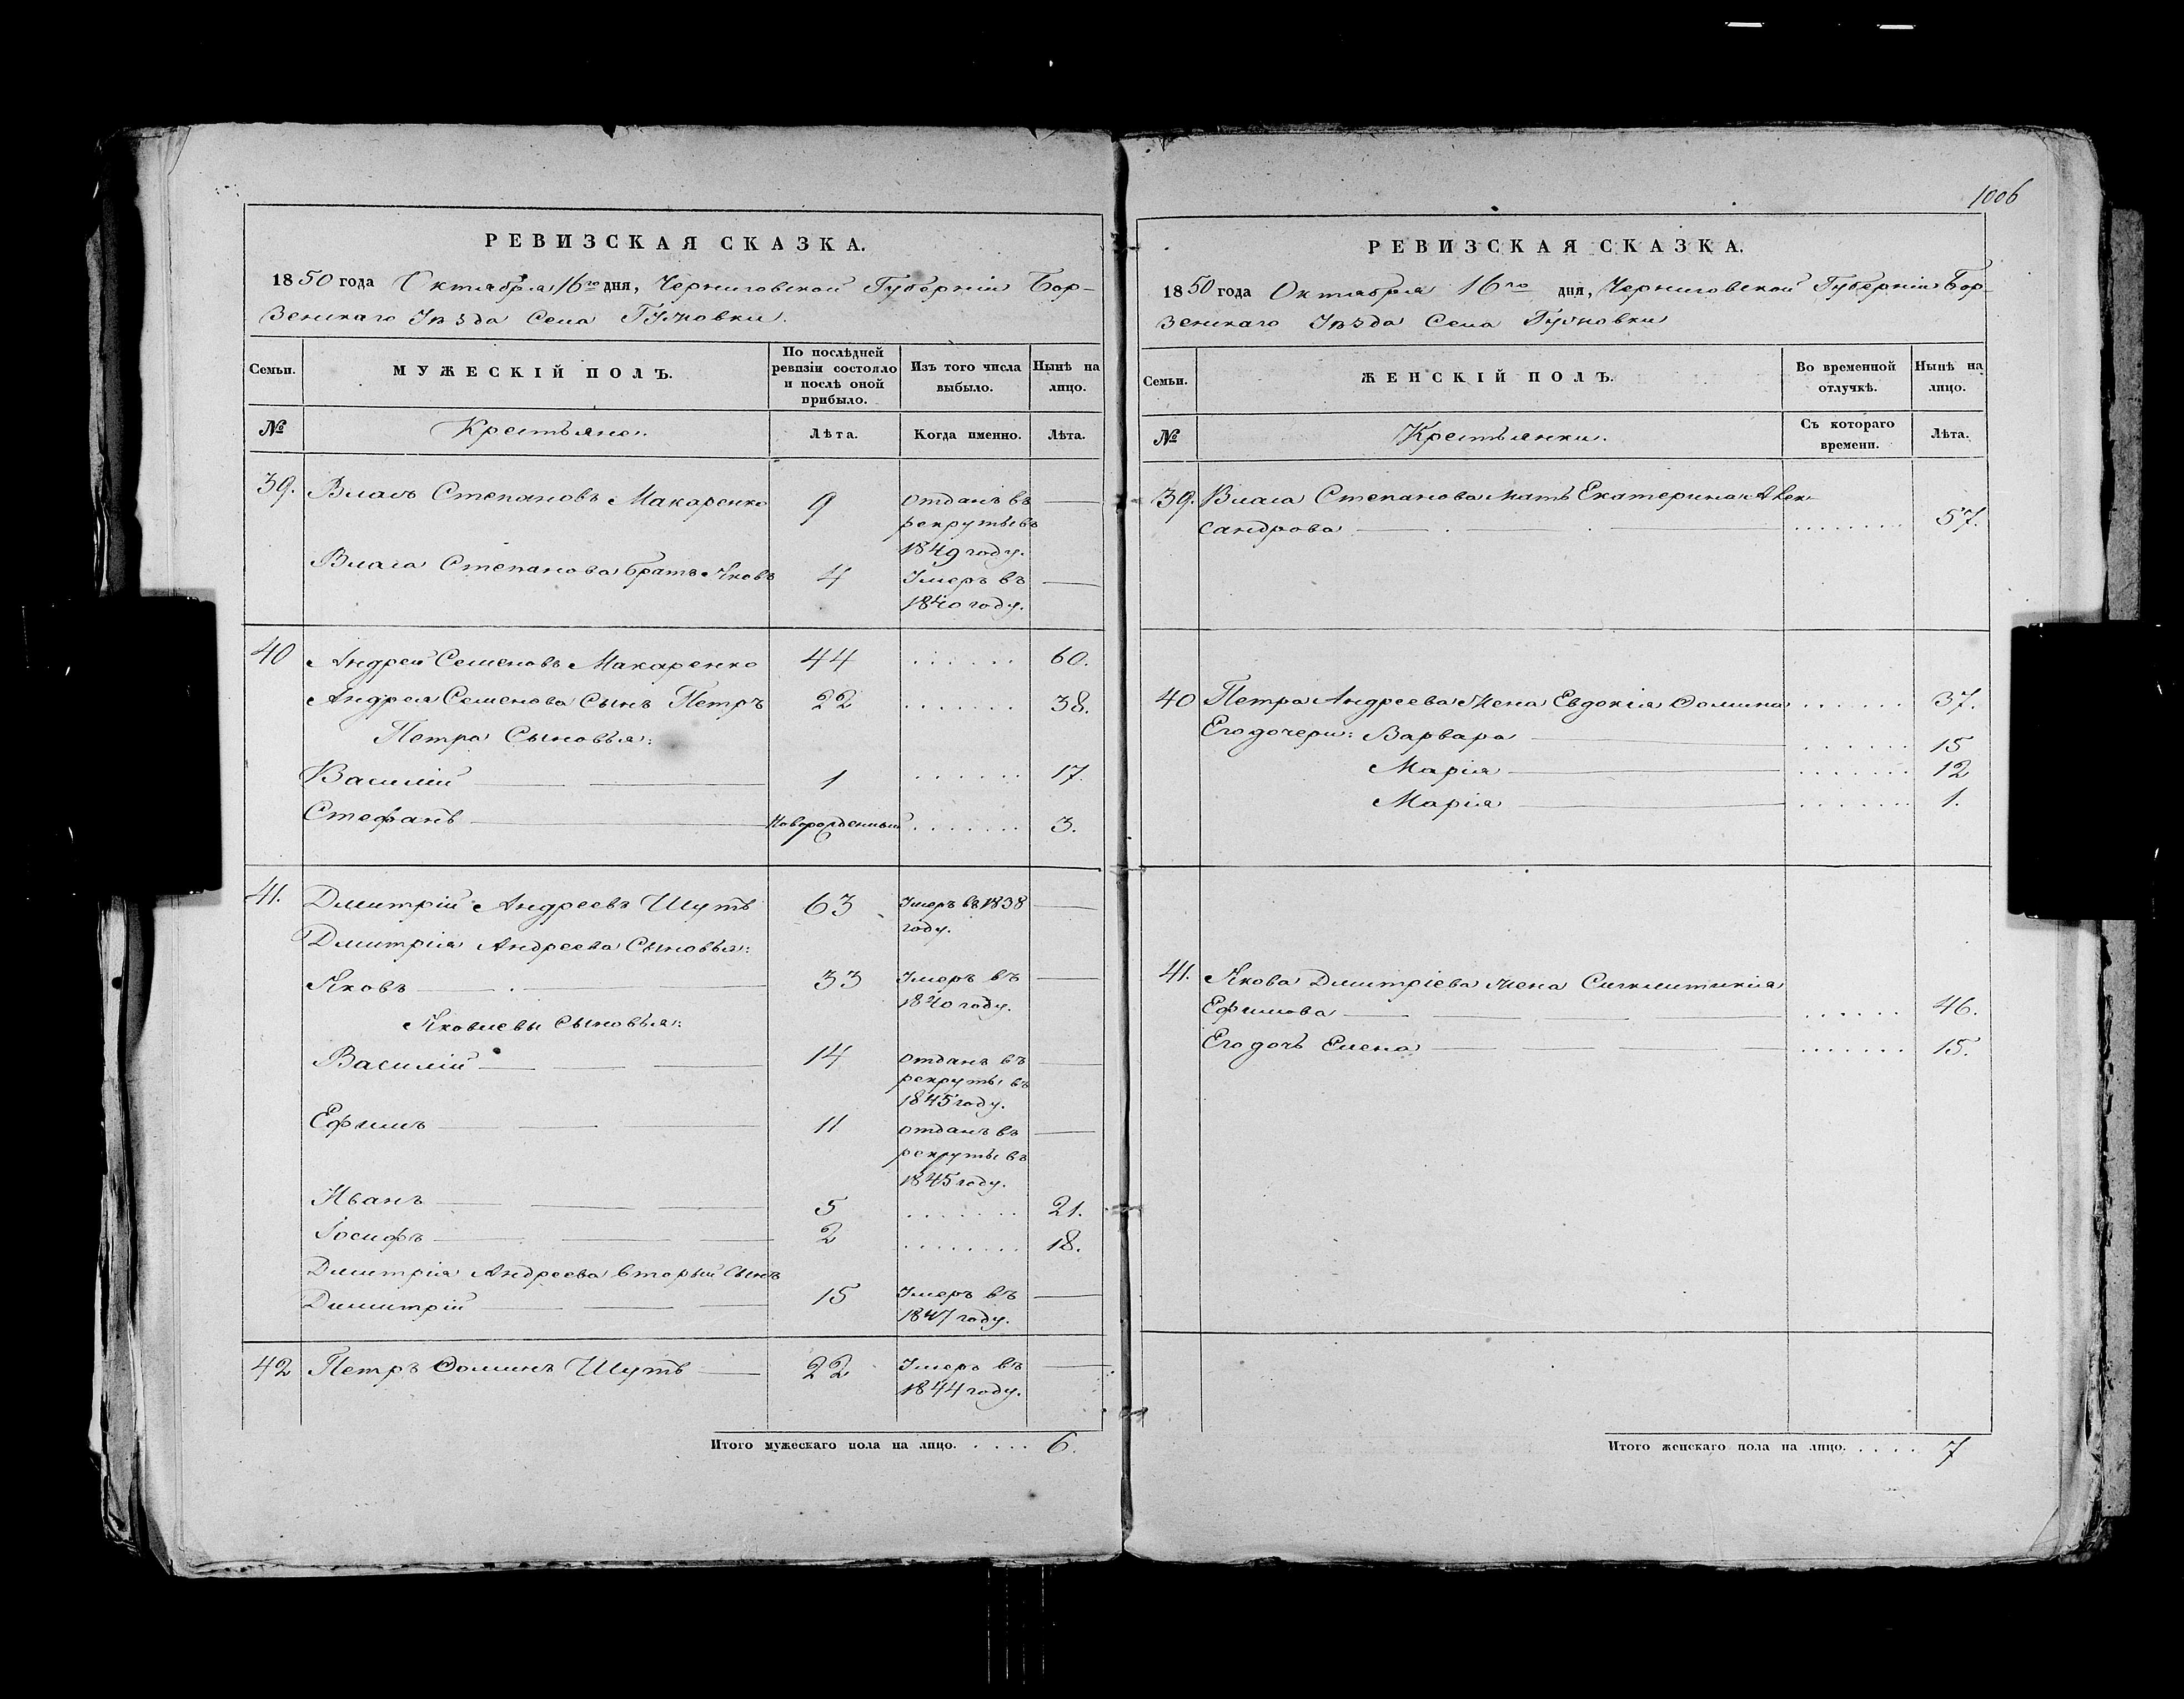 1006
РЕВИЗСКАЯ СКАЗКА.
1850 года Октября 16го дня, Черниговской Губерніи Бор-
зенскаго Уѣзда Села Гужовки.
Семьи.
МУЖЕСКІЙ ПОЛЪ.
По послѣдней
ревизіи состояло
и послѣ оной
прибыло.
Изъ того числа
выбыло.
Нынѣ на
лицо.
№
Крестьяне.
Лѣта.
Когда именно.
Лѣта.
39. Власъ Степановъ Макаренко 9 отданъ въ
рекруты въ
1849 году.
Власа Степанова братъ Яковъ 4 Умеръ въ
1840 году.
40 Андрей Семеновъ Макаренко 44 60.
Андрея Семенова Сынъ Петръ 22 38.
Петра Сыновья:
Василій 1 17.
Стефанъ Новорожденный 3.
41. Дмитрій Андреевъ Шутъ 63 Умеръ въ 1838
году.
Дмитрія Андреева Сыновья:
Яковъ 33 Умеръ въ
1840 году.
Яковлевы Сыновья:
Василій 14 отданъ въ
рекруты въ
1845 году.
Ефимъ 11 отданъ въ
рекруты въ
1845 году.
Иванъ 5 21.
Іосифъ 2 18.
Дмитрія Андреева вторый Сынъ
Димитрій 15 Умеръ въ
1847 году.
42 Петръ Ѳоминъ Шутъ 22 Умеръ въ
1844 году.
Итого мужескаго пола на лицо. 6.
РЕВИЗСКАЯ СКАЗКА.
1850 года Октября 16го дня, Черниговской Губерніи Бор-
зенскаго Уѣзда Села Гужовки
Семьи.
ЖЕНСКІЙ ПОЛЪ.
Во временной
отлучкѣ.
Нынѣ на
лицо.
№
Крестьянки.
Съ котораго
времени.
Лѣта.
39. Власа Степанова мать Екатерина Алек-
сандрова 57.
40 Петра Андреева жена Евдокія Ѳомина 37.
Его дочери: Варвара 15
Марія 12
Марія 1.
41. Якова Дмитріева жена Синклитикія
Ефимова 46.
Его дочь Елена 15.
Итого женскаго пола на лицо. 7